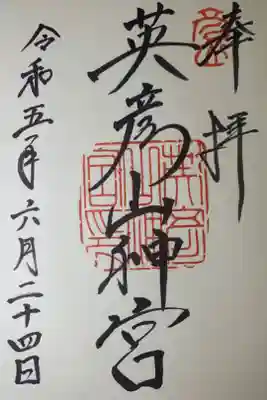 奉拝
英彦山神宮
令和五年六月二十四日